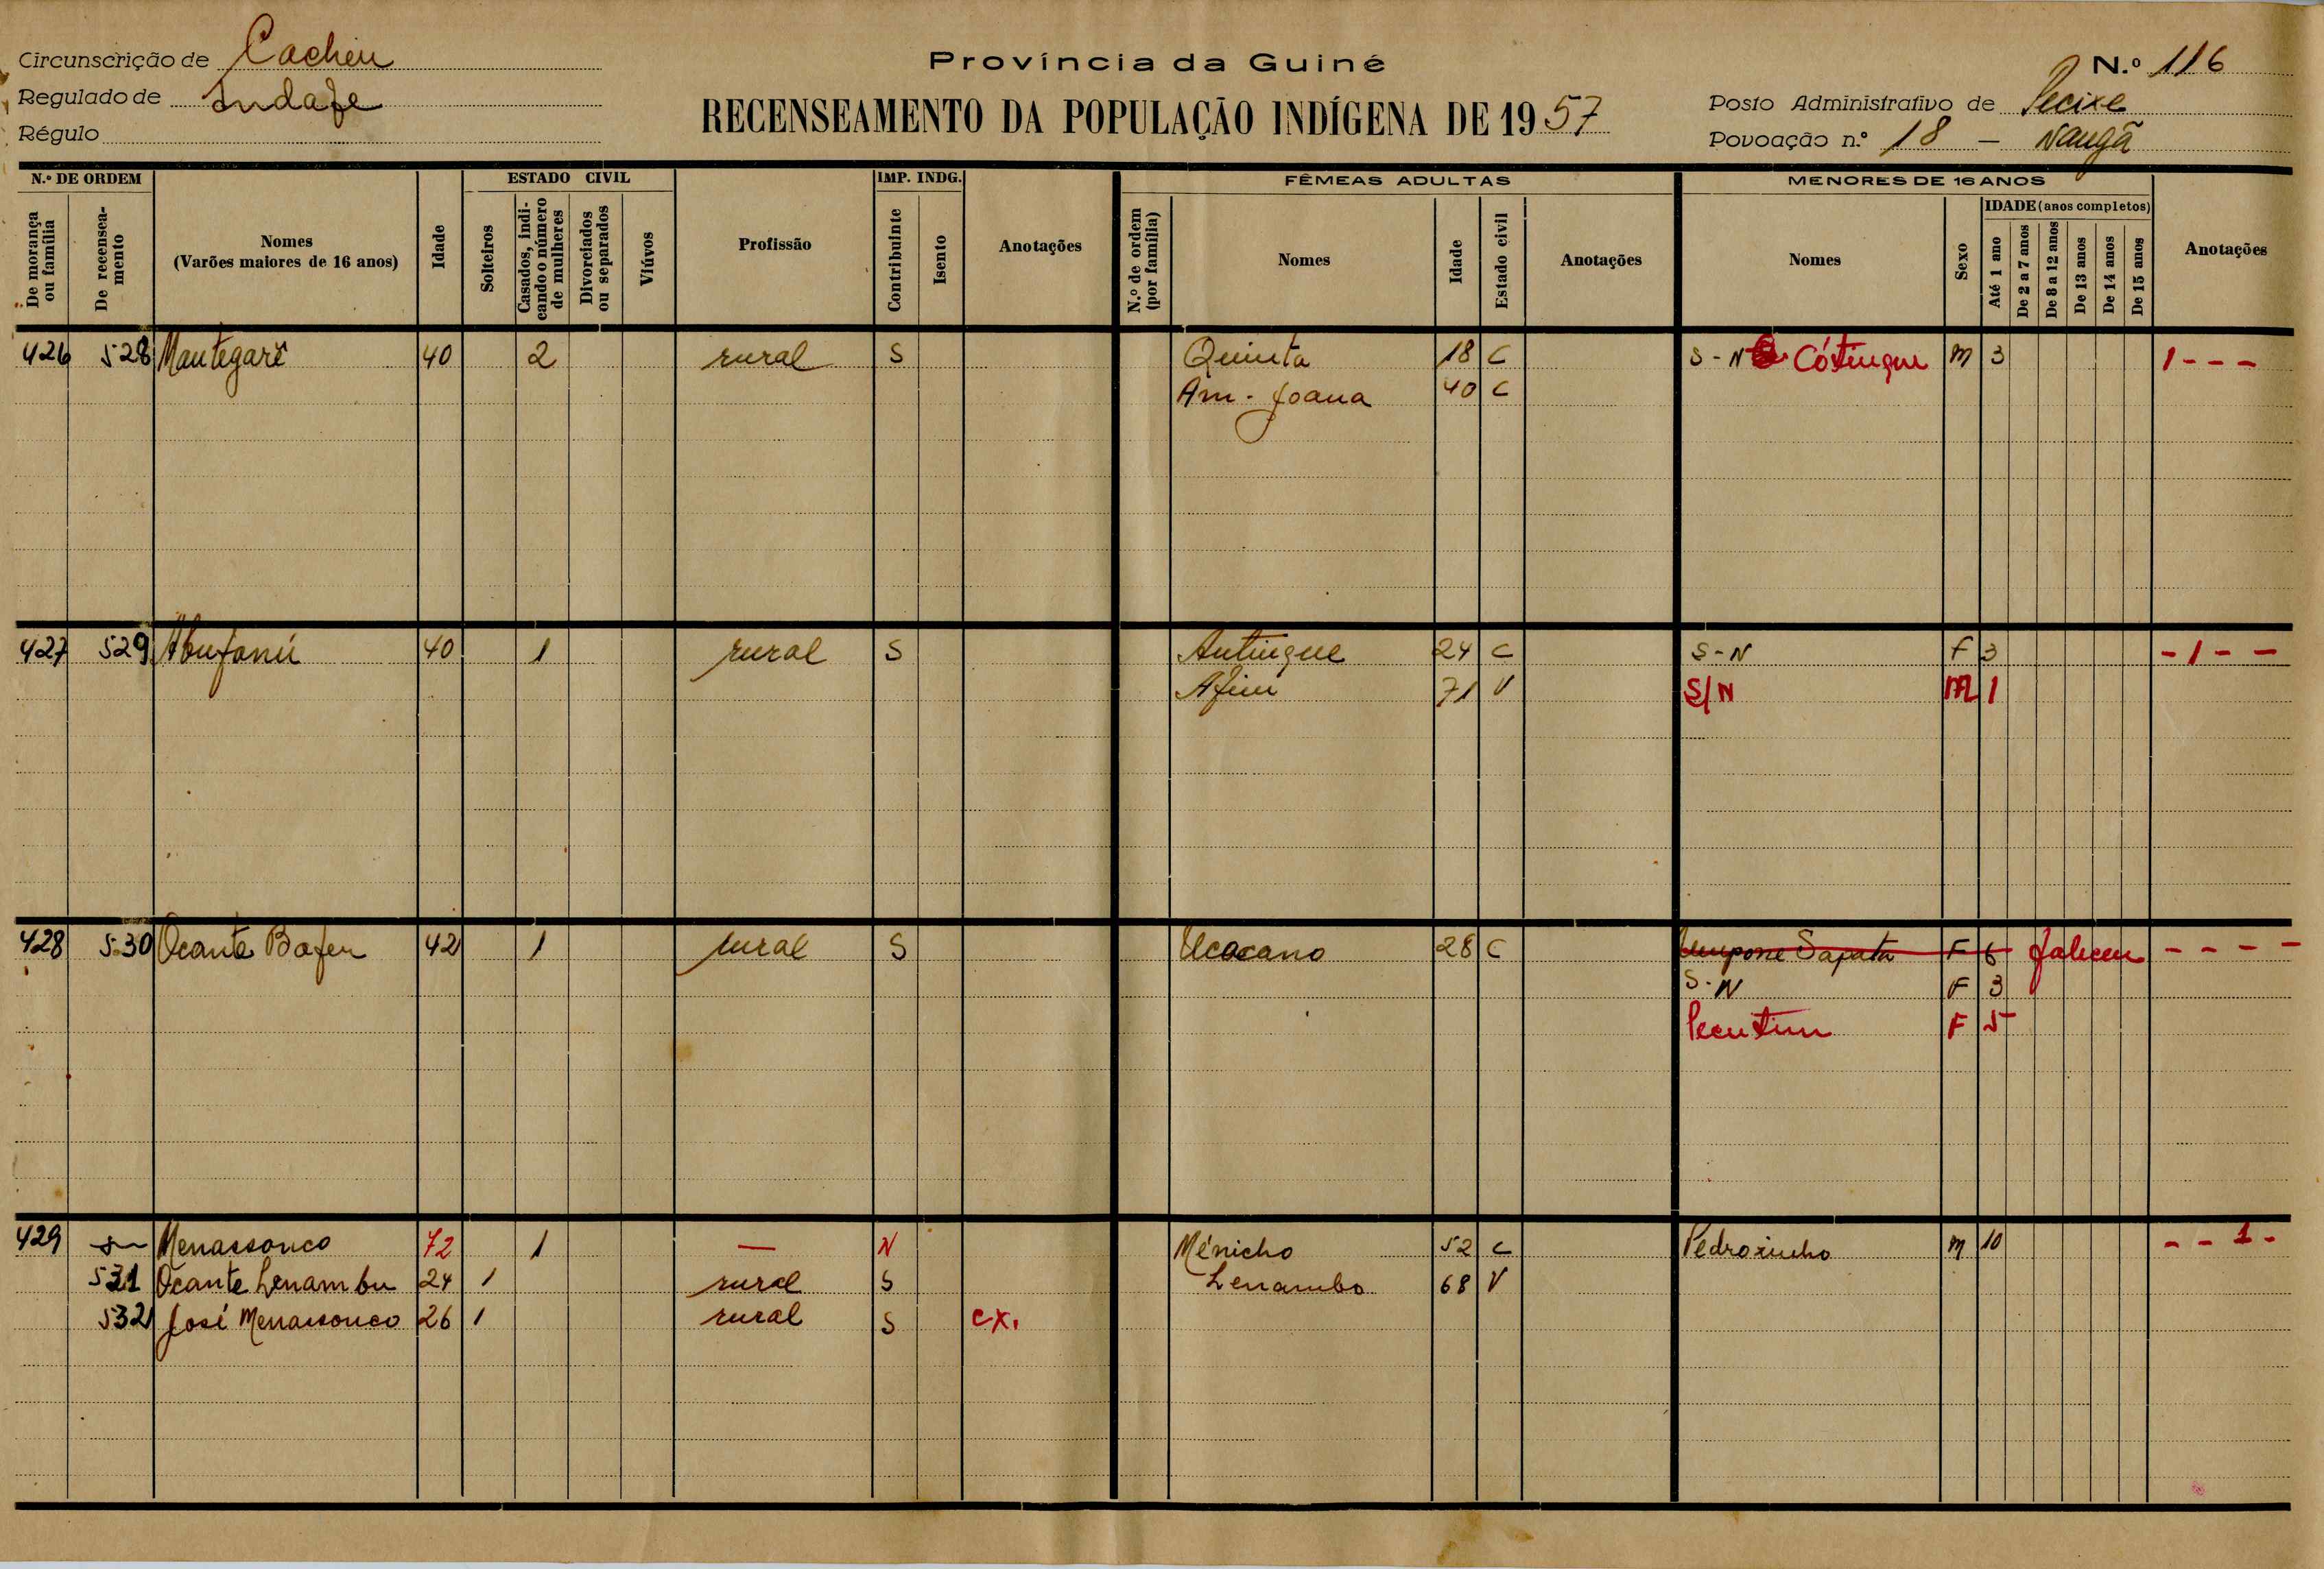 Circunscrição de Cacheu
Regulado de Indafe
Régulo
Província da Guiné
RECENSEAMENTO DA POPULAÇÃO INDÍGENA DE 1957
N.º 116
Posto Administrativo de Pecixe
Povoação n.º 18 — Nangã
N.º DE ORDEM
De morança ou família
De recenseamento
Nomes
(Varões maiores de 16 anos)
Idade
ESTADO CIVIL
Solteiros
Casados, indicando o número de mulheres
Divorciados ou separados
Viúvos
Profissão
IMP. INDG.
Contribuinte
Isento
Anotações
FÊMEAS ADULTAS
N.º de ordem (por família)
Nomes
Idade
Estado civil
Anotações
MENORES DE 16 ANOS
Nomes
Sexo
IDADE (anos completos)
Até 1 ano
De 2 a 7 anos
De 8 a 12 anos
De 13 anos
De 14 anos
De 15 anos
Anotações
426 528 Mantegarê 40 2 rural S Quinta 18 C S-N Cótingue M 3 1 - - -
Am. Joana 40 C
427 529 Abufanú 40 1 rural S Antingue 24 C S-N F 3 - 1 - -
Afini 71 V S/N M 1
428 530 Ocante Bafen 42 1 rural S Ucacano 28 C Umpone Sapata F 6 faleceu - - - -
S-N F 3
Pecutim F 5
429 Menassonco 72 1 — N Ménicho 52 C Pedrozinho M 10 - - 1 -
531 Ocante Lenambu 24 1 rural S Lenambo 68 V
532 José Menassonco 26 1 rural S cx.